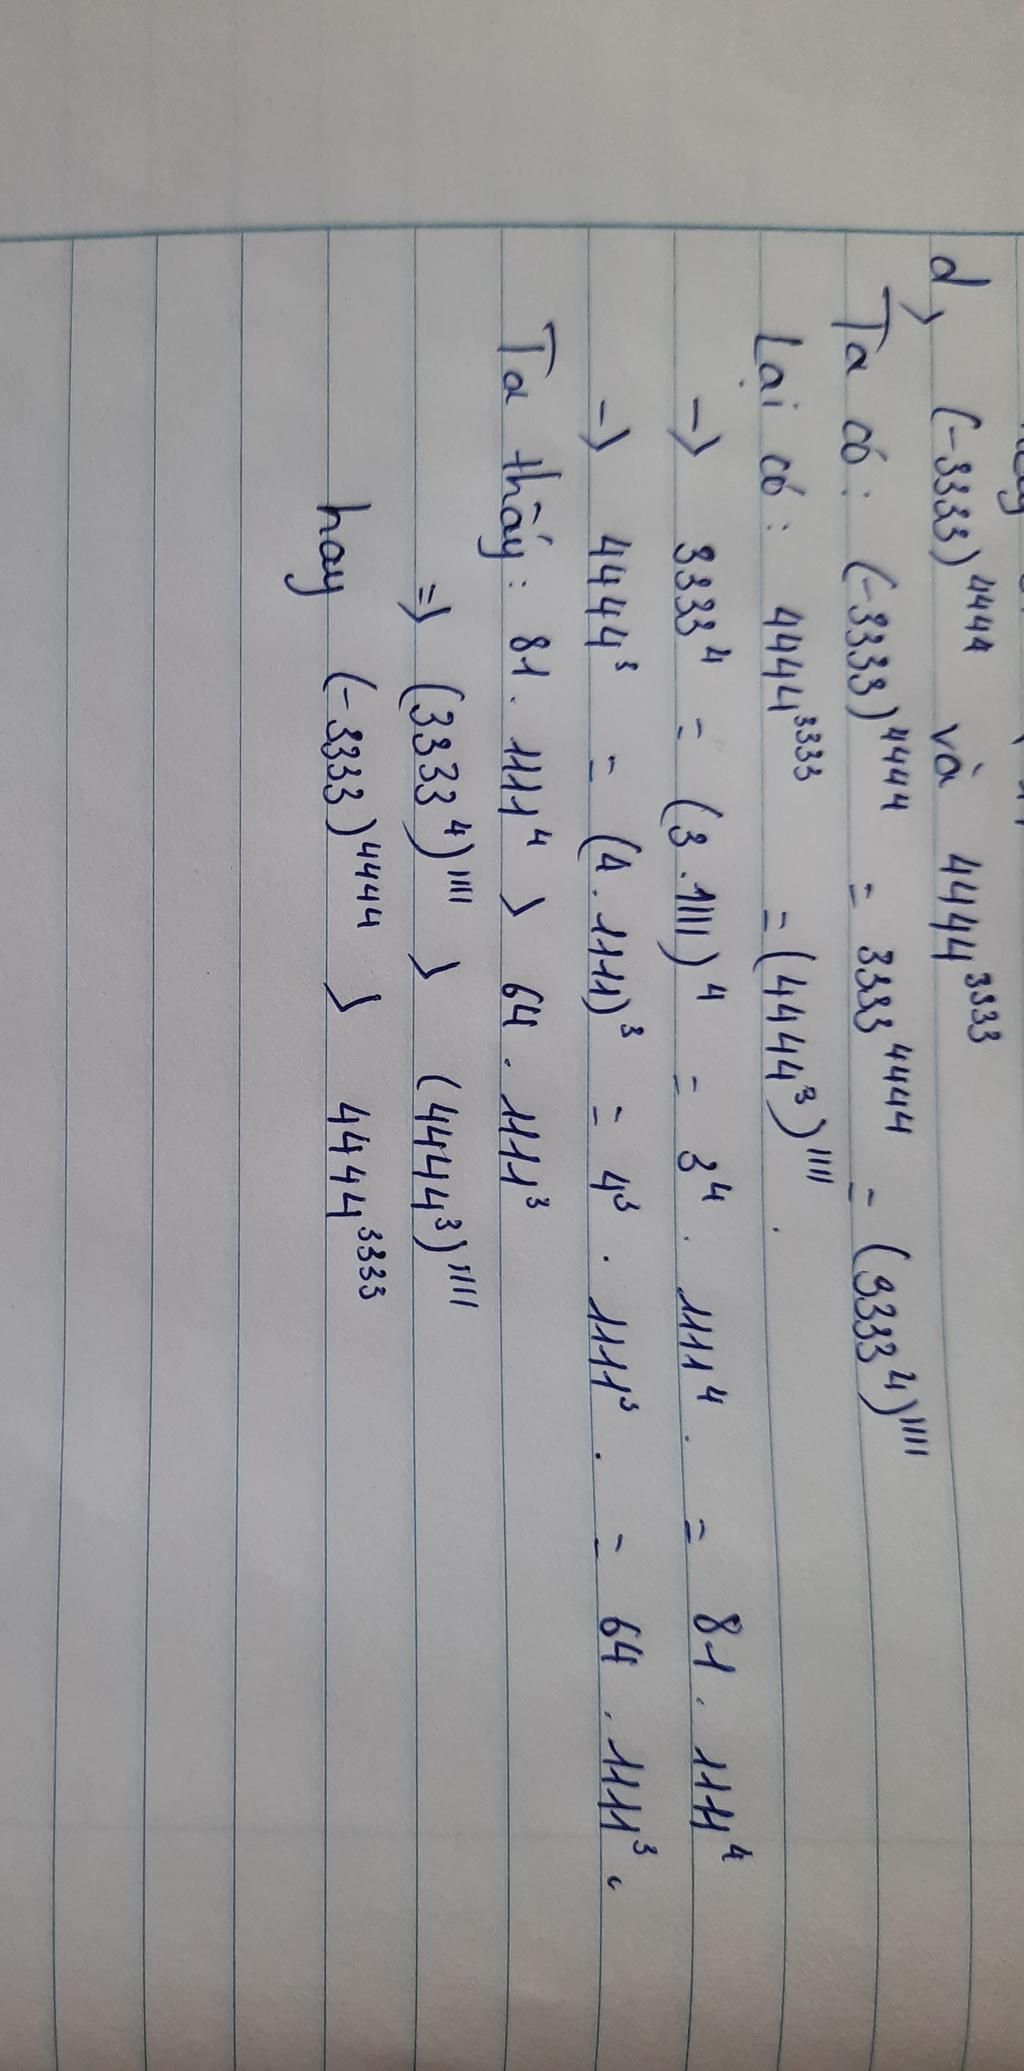 d) (-3333)⁴⁴⁴⁴ và 4444³³³³
Ta có: (-3333)⁴⁴⁴⁴ = 3333⁴⁴⁴⁴ = (3333⁴)¹¹¹¹
Lại có: 4444³³³³ = (4444³)¹¹¹¹.
-> 3333⁴ = (3.1111)⁴ = 3⁴. 1111⁴. = 81. 1111⁴
-> 4444³ = (4.1111)³ = 4³. 1111³. = 64. 1111³.
Ta thấy: 81. 1111⁴ > 64. 1111³
=> (3333⁴)¹¹¹¹ > (4444³)¹¹¹¹
hay (-3333)⁴⁴⁴⁴ > 4444³³³³